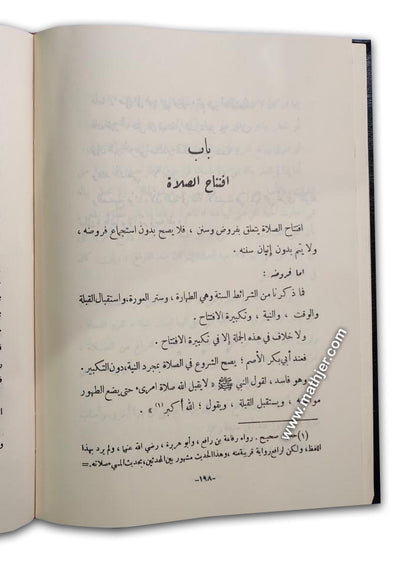 باب
افتتاح الصلاة
افتتاح الصلاة يتعلق بفروض وسنن ، فلا يصح بدون استجماع فروضه ،
ولا يتم بدون إتيان سننه .
اما فروضه :
فما ذكرنا من الشرائط الستة وهي الطهارة ، وستر العورة، واستقبال القبلة
والوقت ، والنية ، وتكبيرة الافتتاح .
ولا خلاف في هذه الجملة إلا في تكبيرة الافتتاح .
فعند أبي بكر الأصم ؛ يصح الشروع في الصلاة بمجرد النية، دون التكبير .
وهو فاسد ، لقول النبي ﷺ « لا يقبل الله صلاة امرىء حتى يضع الطهور
مواضعه ، ويستقبل القبلة ، ويقول ؛ الله أكبر(١) » .
(١) صحيح . رواه رفاعة بن رافع ، وأبو هريرة ، رضي الله عنهما، ولم يرد بهذا
اللفظ، ولكن لرافع رواية قريبة منه ، وهذا الحديث مشهور بين المحدثين، بحديث المسيء صلاته. =
-١٩٨-
www.mathjer.com